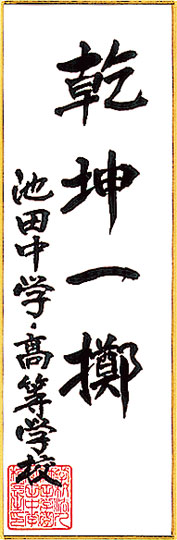 乾坤一擲
池田中学・高等学校